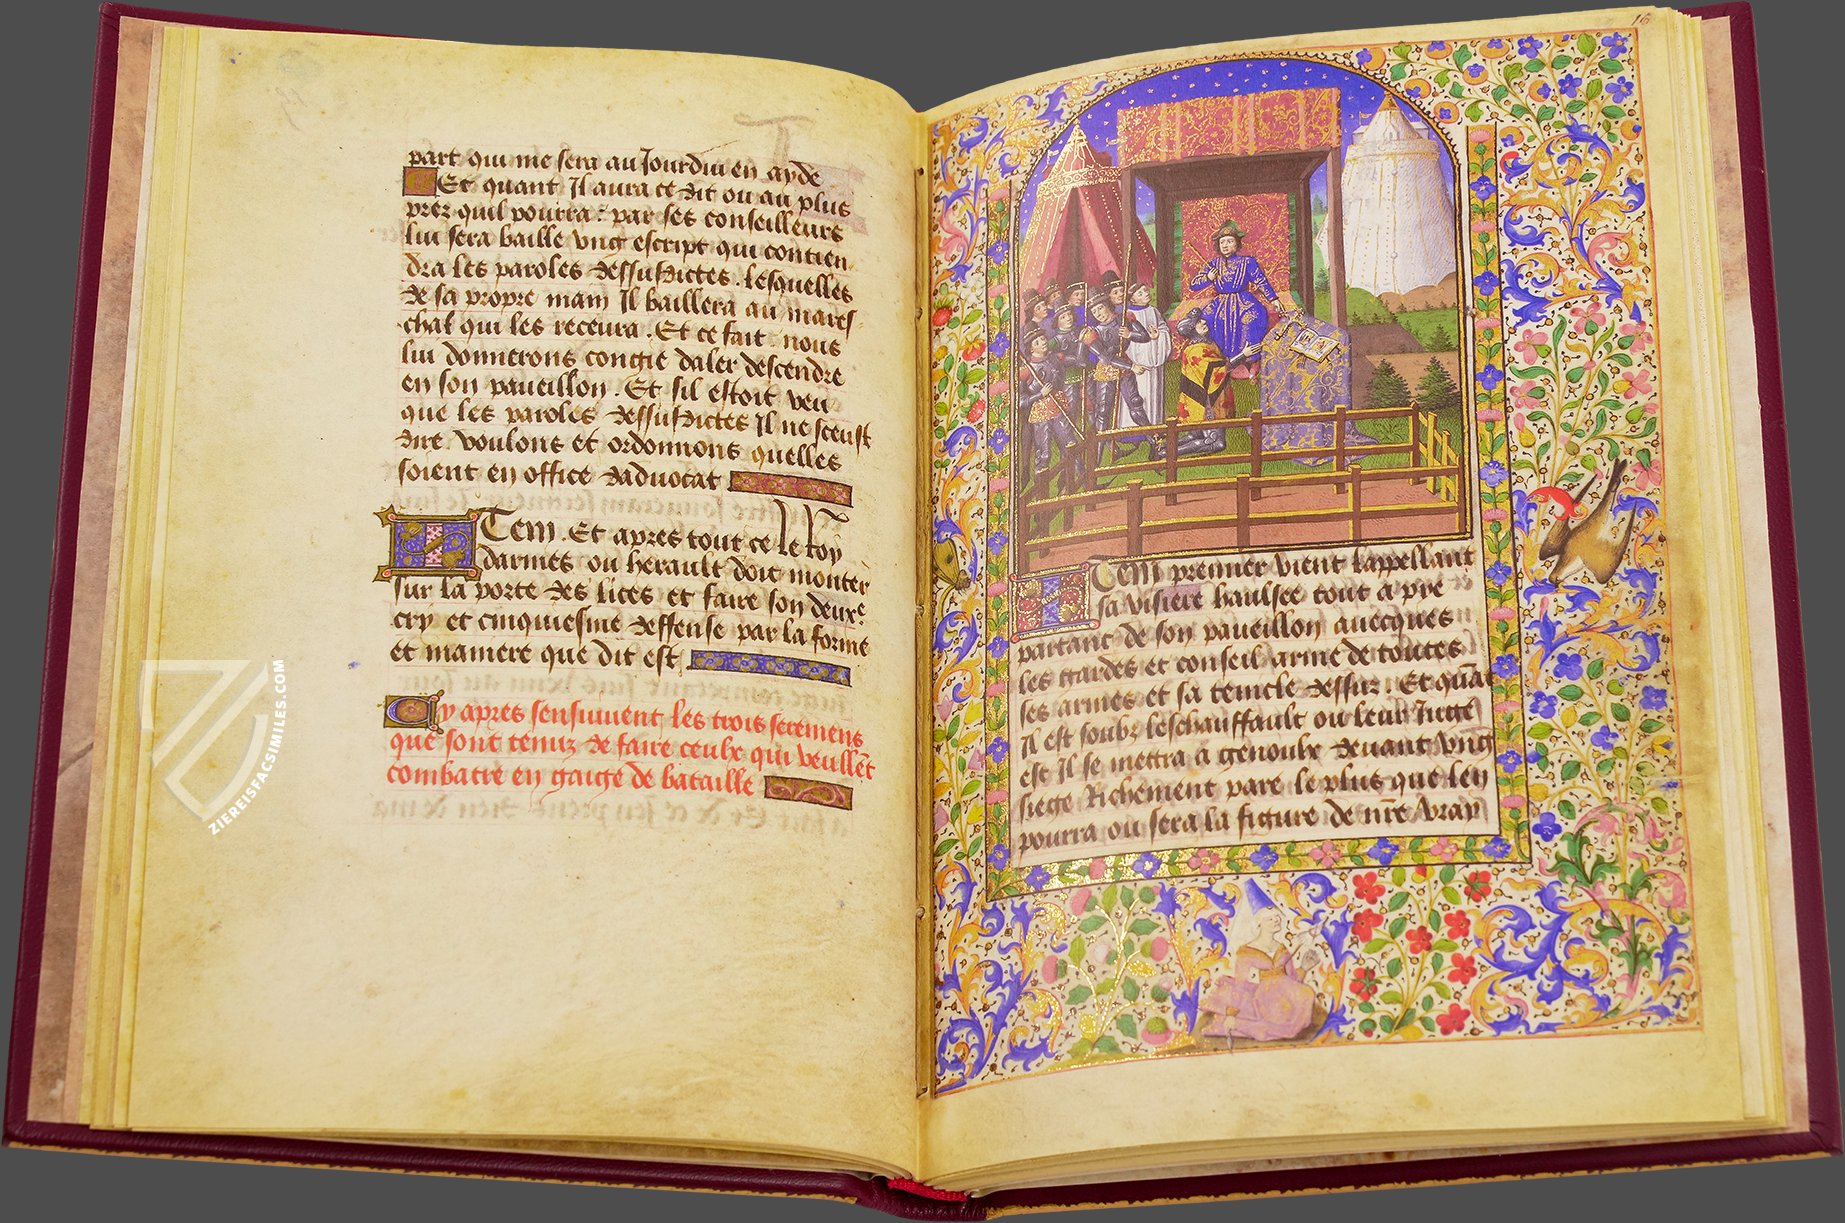 part qui me sera au Jourdui en ayde
Et quant Il aura ce dit ou au plus
prez quil pourra : par ses conseilleurs
lui sera baille vng escript qui contien
dra les paroles dessusdictes . lesquelles
de sa propre main Il baillera au mares
chal qui les receura . Et ce fait nous
lui donnerons congie daler descendre
en son paueillon . Et sil estoit veu
que les paroles dessusdictes Il ne sceust
dire voulons et ordonnons quelles
soient en office daduocat
ITem . Et apres tout ce le roy
darmes ou herault doit monter
sur la porte des lices et faire son deuxe
cry et cinquiesme deffense par la forme
et maniere que dit est
Cy apres sensuiuent les trois seremens
que sont tenuz de faire ceulx qui veullēt
combatre en gaige de bataille
ZIEREISFACSIMILES.COM
16
ITem premier vient lappellant
sa visiere haulsee tout a pie
partant de son paueillon auecques
les gardes et conseil arme de toutes
ses armes et sa temcle dessuz . Et quāt
Il est soubz leschauffault ou leur Juge
est Il se mettra a genoulx deuant vng
siege Richement pare le plus que len
pourra ou sera la figure de nr̄e vray